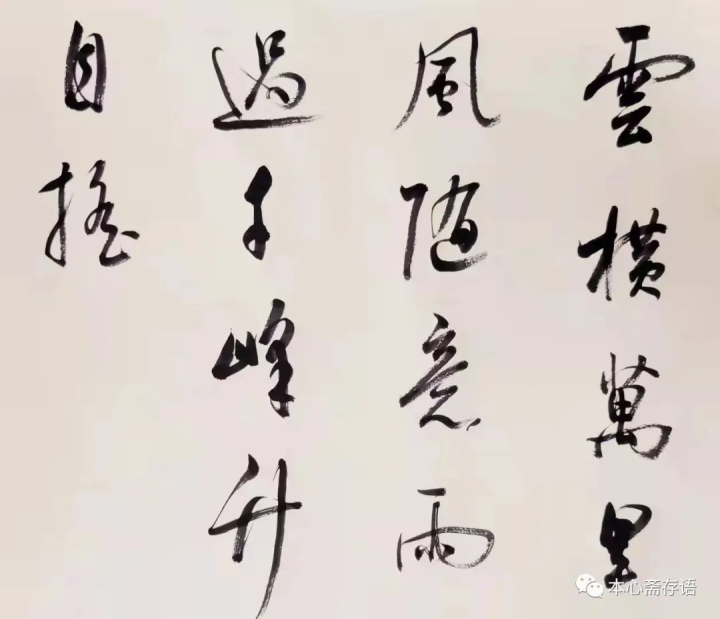 雲横萬里
風隨意雨
過千峰竹
自搖
本心斋存语